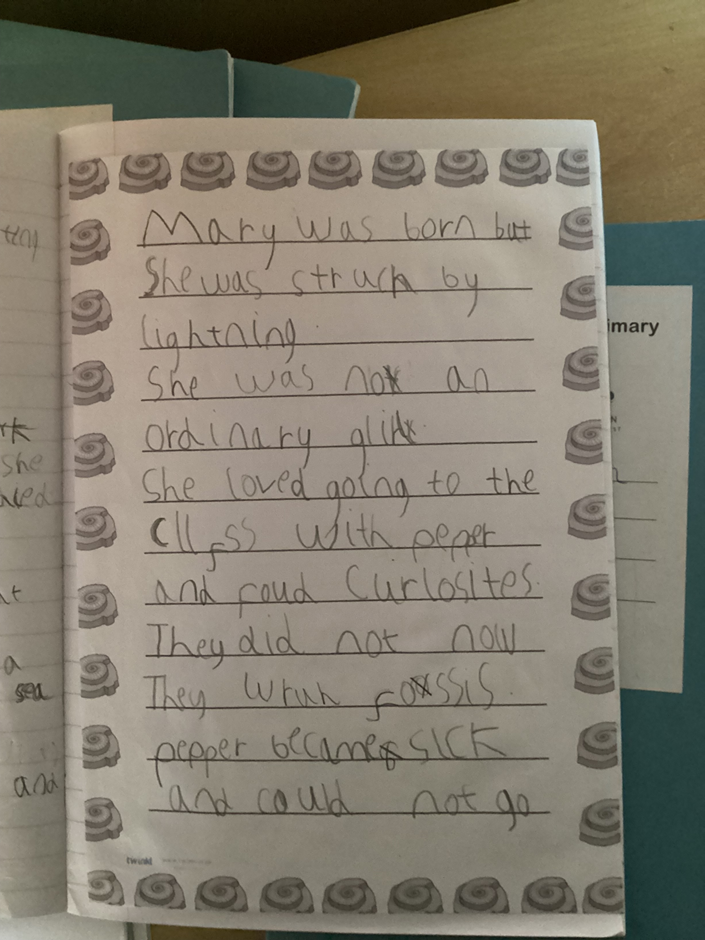 Mary was born but
She was struck by
lightning
She was not an
ordinary glirl.
She loved going to the
Cllfss with pepper
and foud Curlosites.
They did not now
They wrun fossis.
pepper became sick
and could not go
twinkl
imary
she
a
sea
and